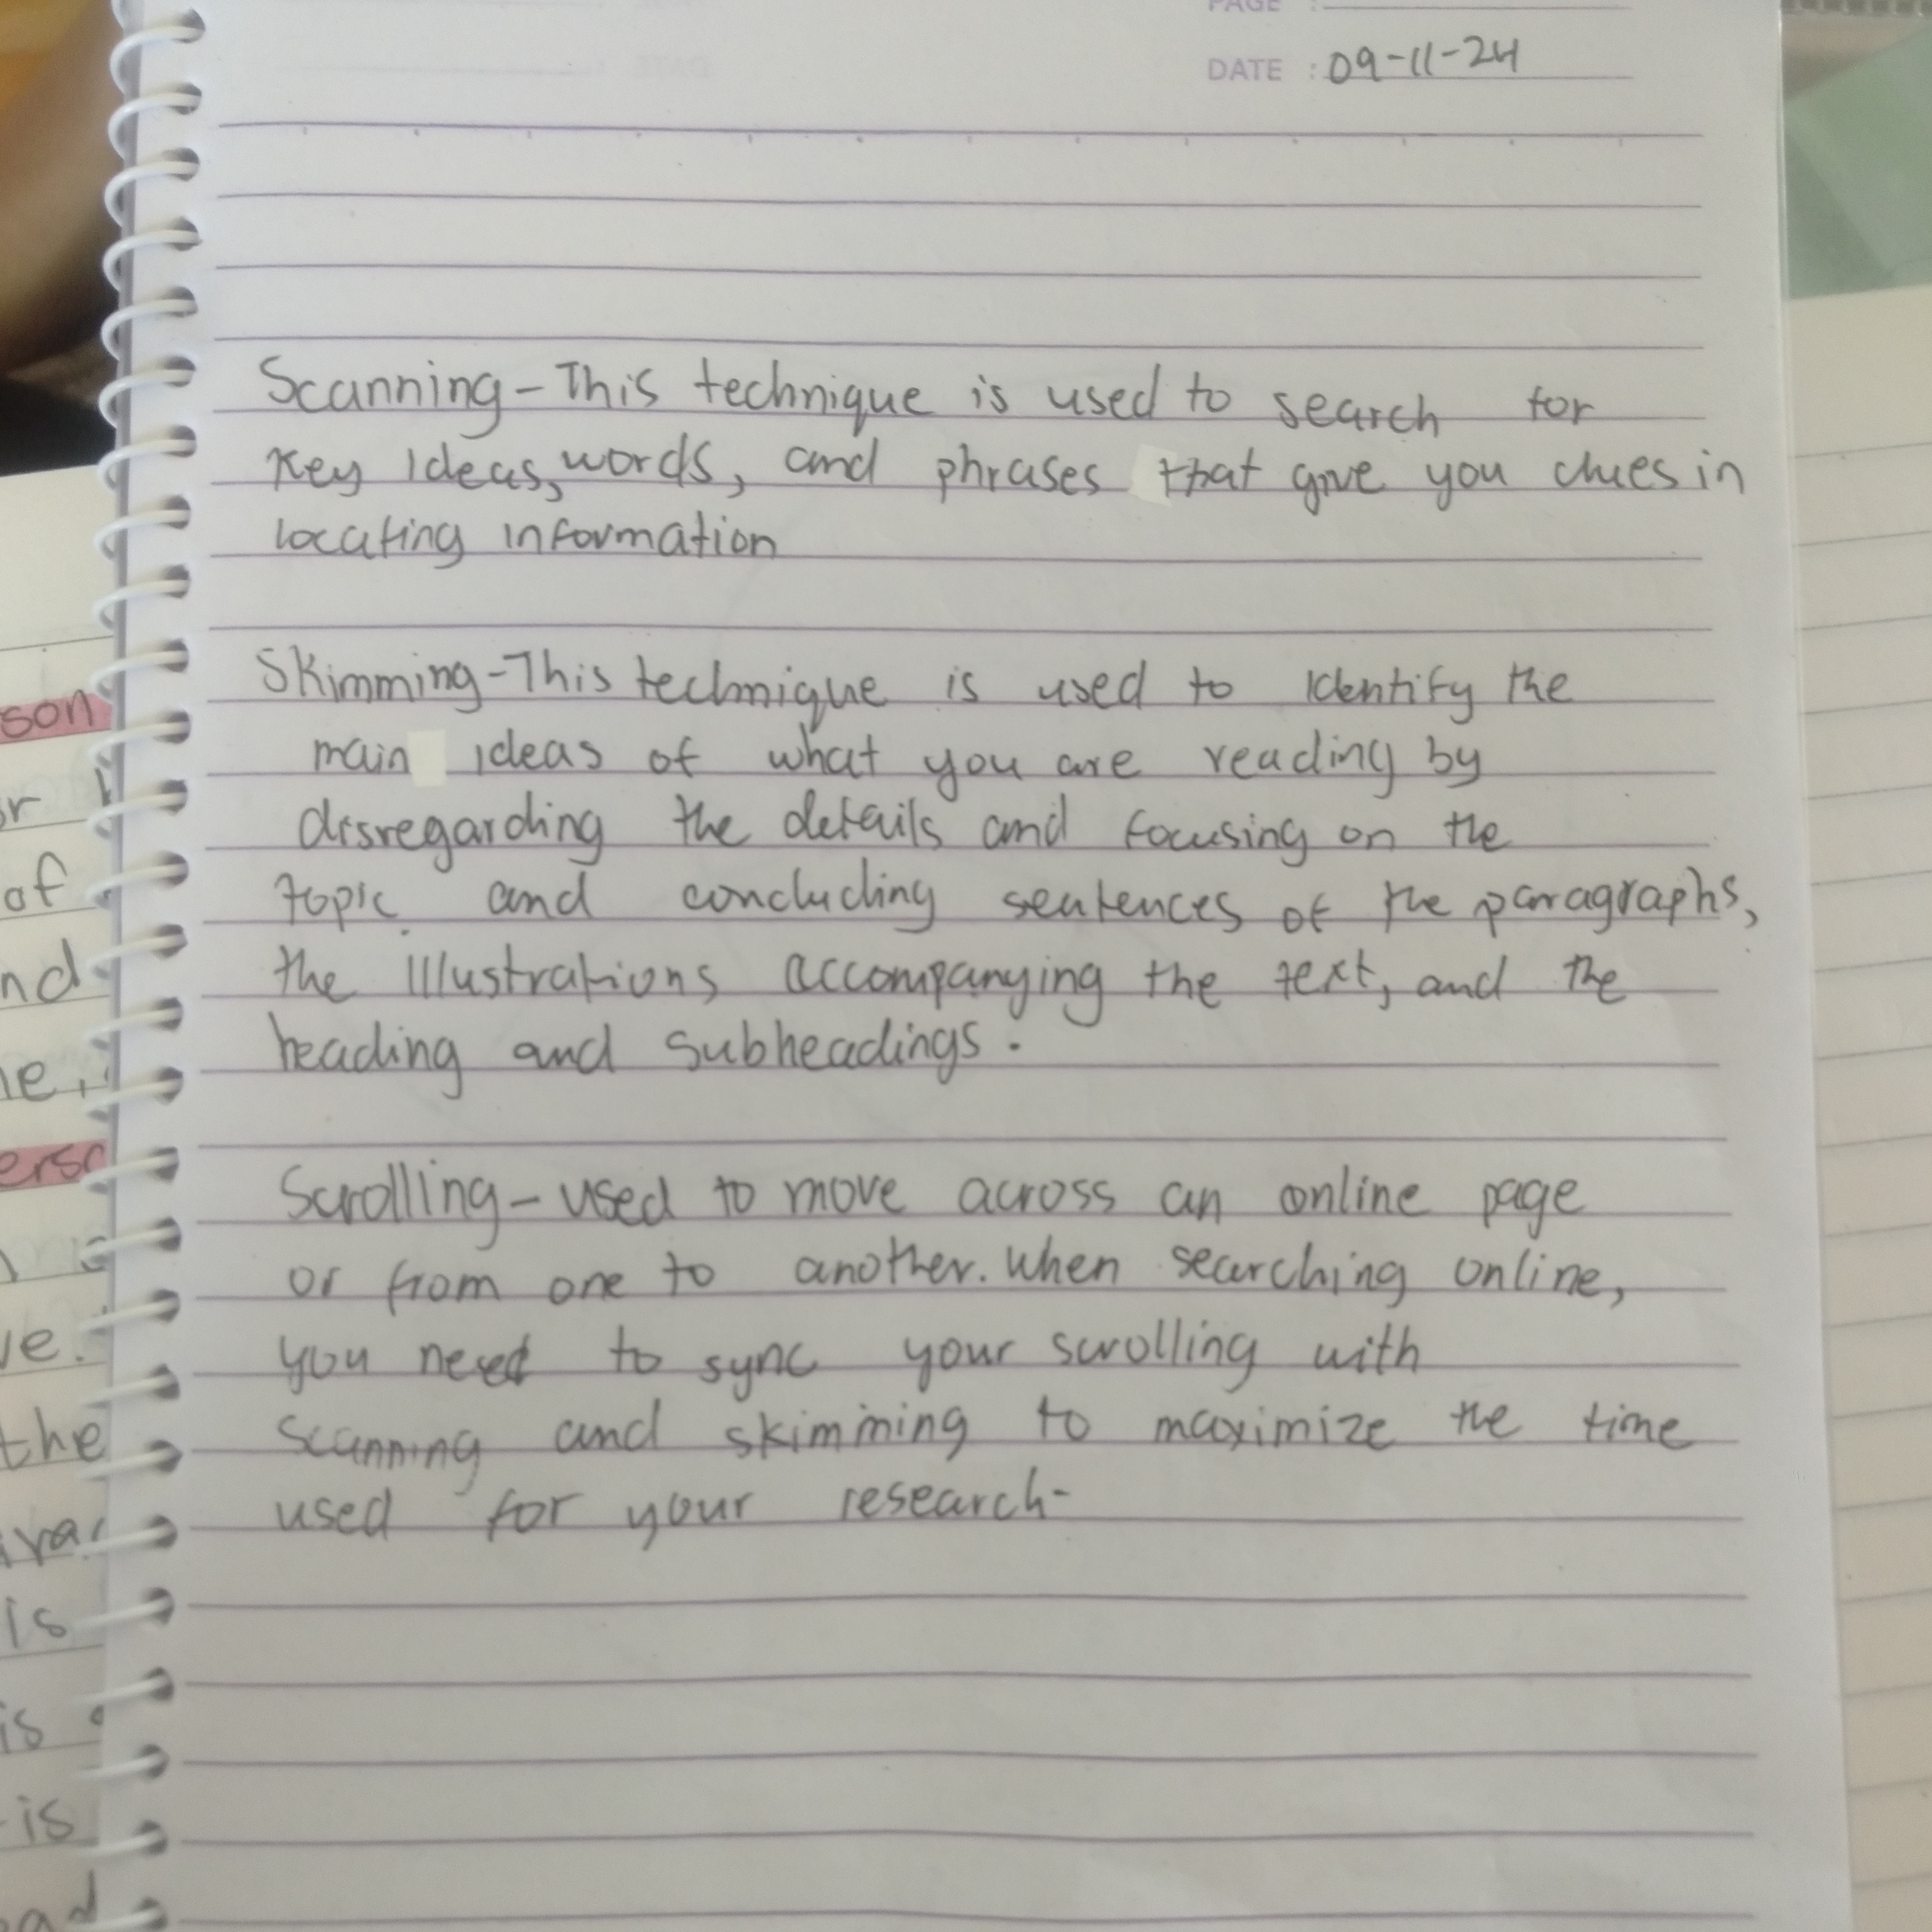 PAGE :
DATE : 09-11-24
Scanning - This technique is used to search for
key ideas, words, and phrases that give you clues in
locating information
Skimming - This technique is used to identify the
main ideas of what you are reading by
disregarding the details and focusing on the
topic and concluding sentences of the paragraphs,
the illustrations accompanying the text, and the
heading and subheadings.
Scrolling - used to move across an online page
or from one to another. When searching online,
you need to sync your scrolling with
scanning and skimming to maximize the time
used for your research-
son
of
the
is
is
is